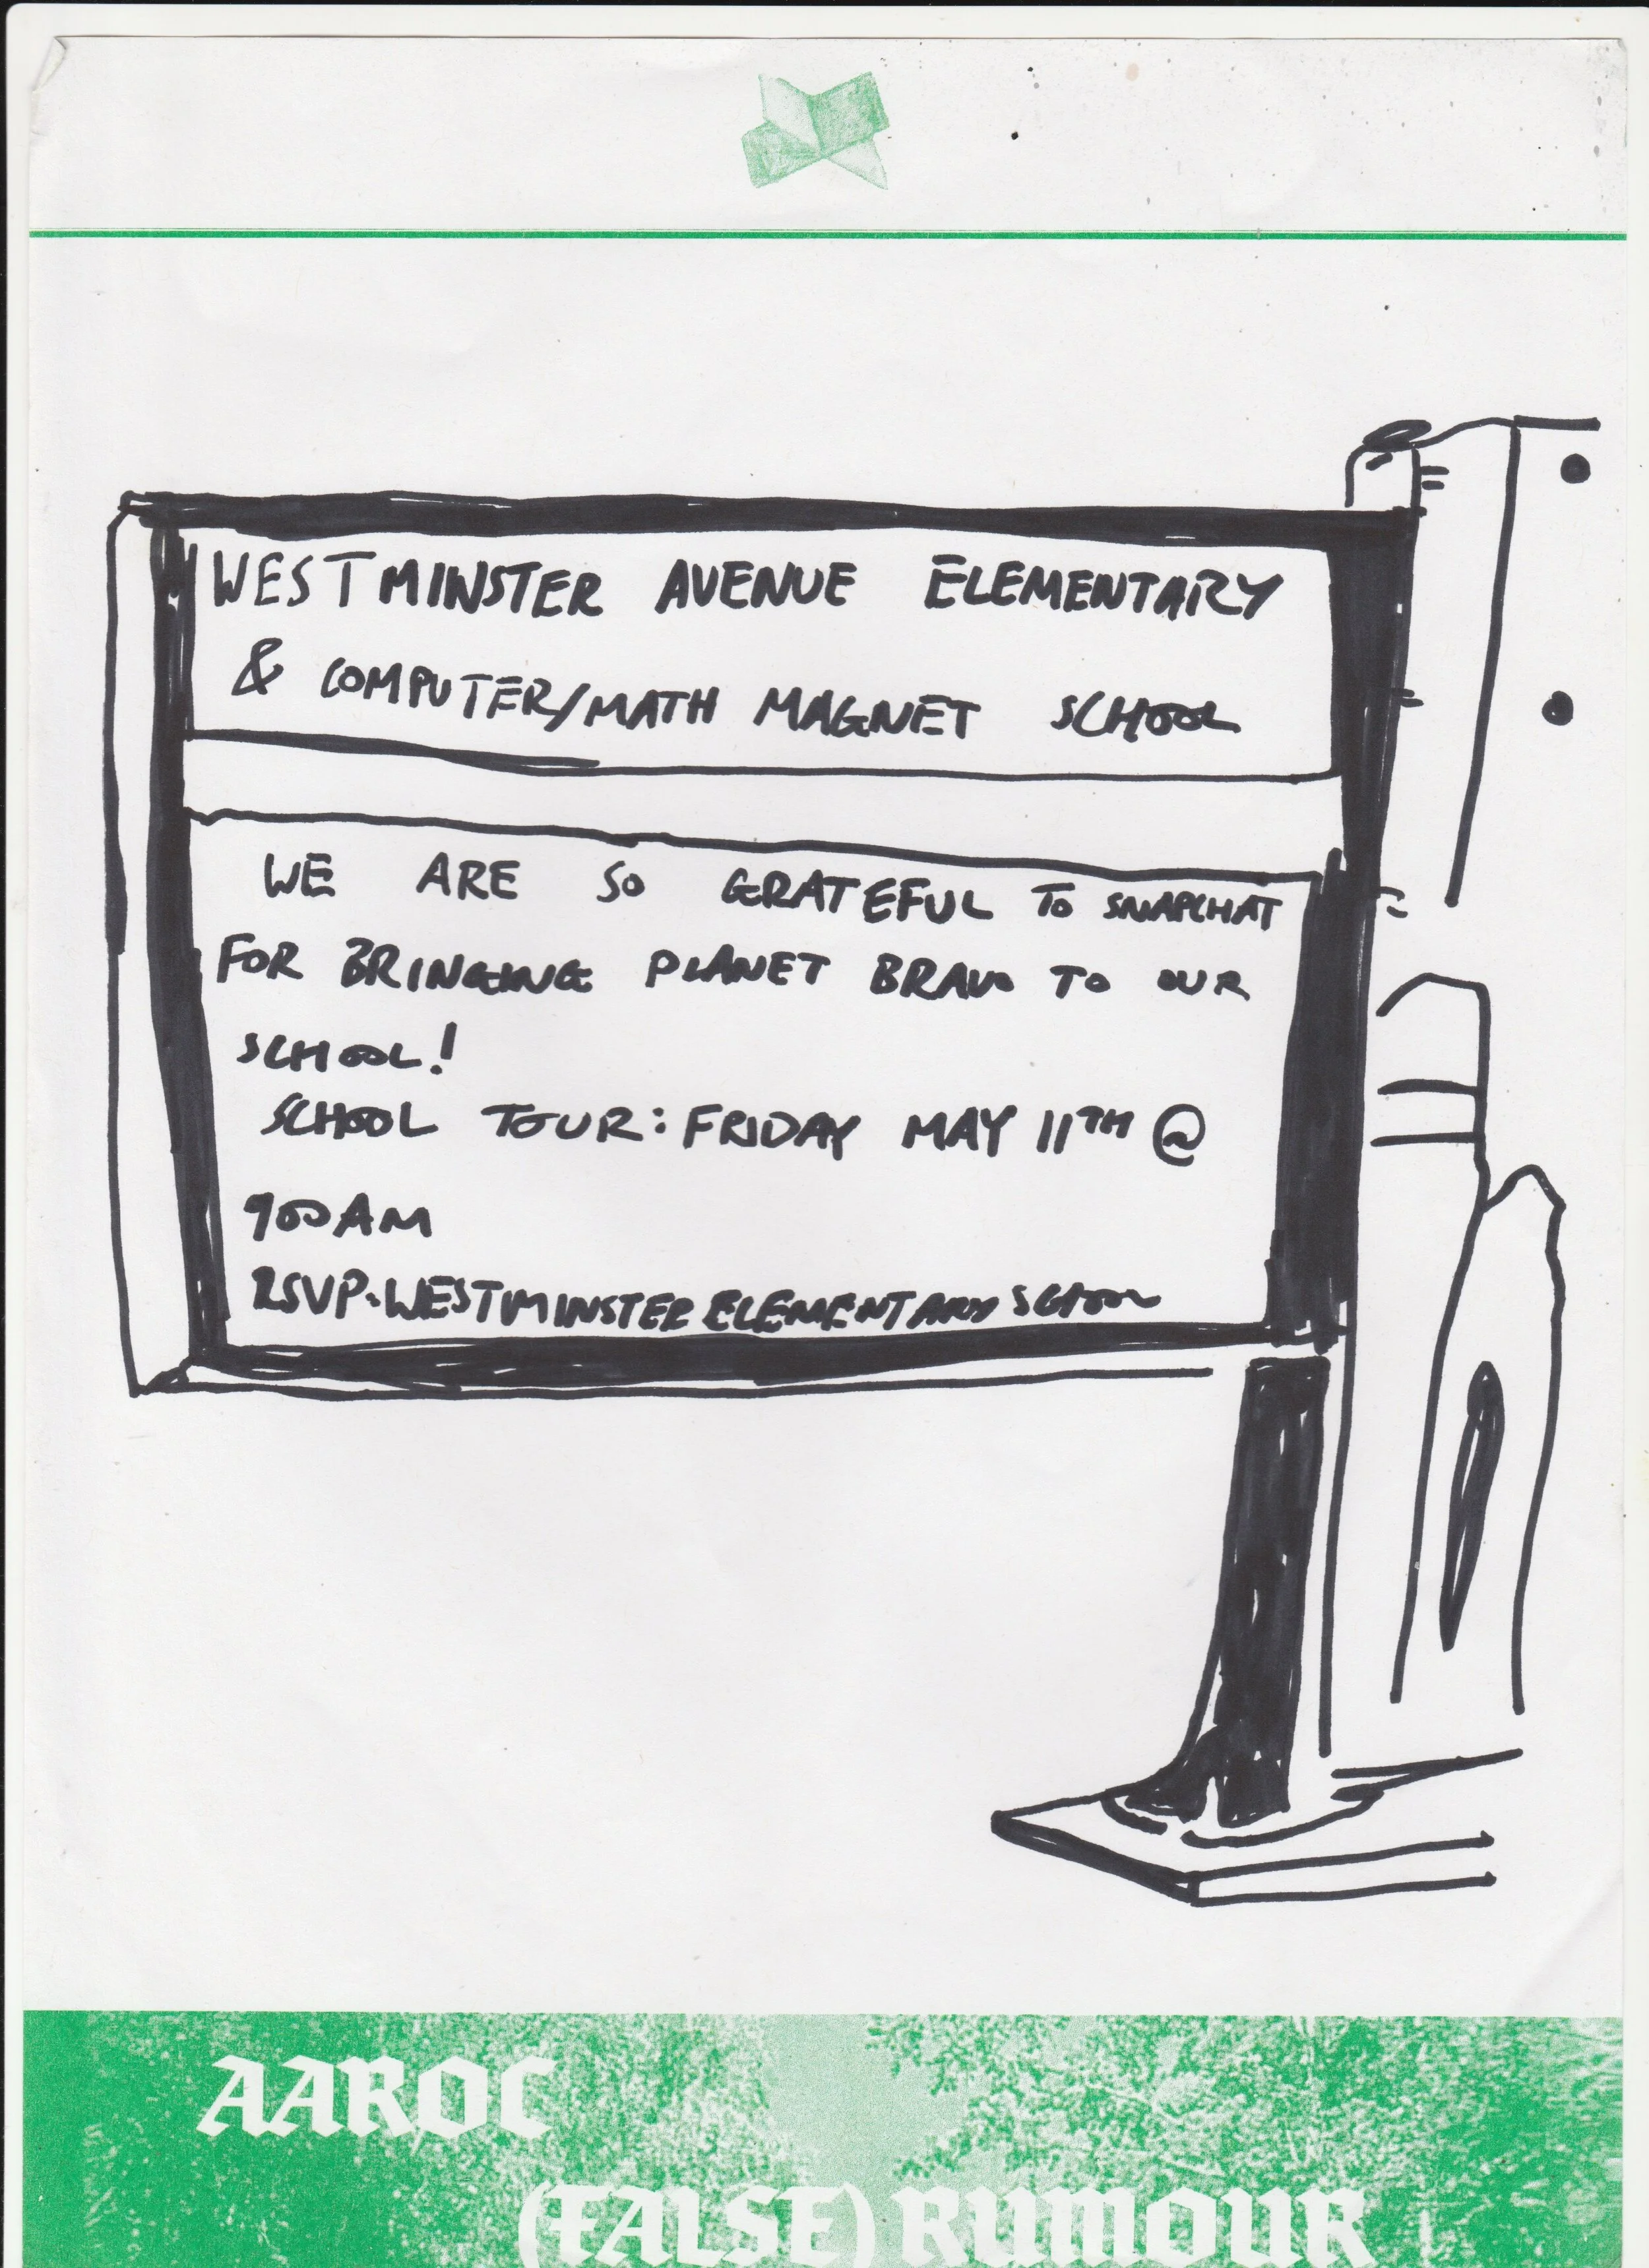 WESTMINSTER AVENUE ELEMENTARY
& COMPUTER/MATH MAGNET SCHOOL
WE ARE SO GRATEFUL TO SNAPCHAT
FOR BRINGING PLANET BRAVO TO OUR
SCHOOL!
SCHOOL TOUR: FRIDAY MAY 11TH @
900AM
RSVP-WESTMINSTER ELEMENTARY SCHOOL
AAROC
(FALSE) RUMOUR